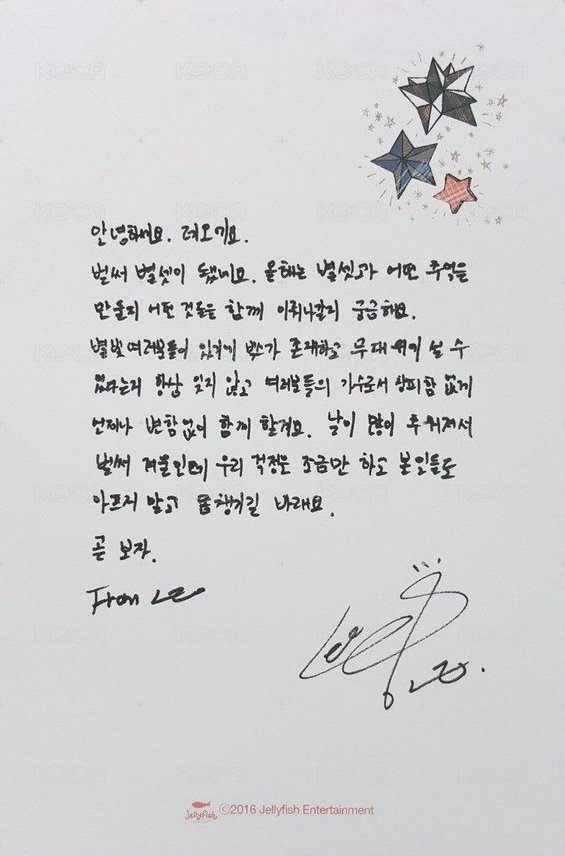 안녕하세요. 레오기요.
벌써 별셋이 됐네요. 올해는 별셋과 어떤 추억을
만들지 어떤 것들을 함께 이뤄나갈지 궁금해요.
별빛 여러분들이 있기에 빅스가 존재하고 무대 위에 설 수
있다는걸 항상 잊지 않고 여러분들의 가수로서 창피함 없게
언제나 변함없이 함께 할거요. 날이 많이 추워져서
벌써 겨울인데 우리 걱정은 조금만 하고 본인들도
아프지 말고 몸 챙기길 바래요.
곧 보자.
From LEO
Leo
LEO.
Jellyfish ©2016 Jellyfish Entertainment
KOCA